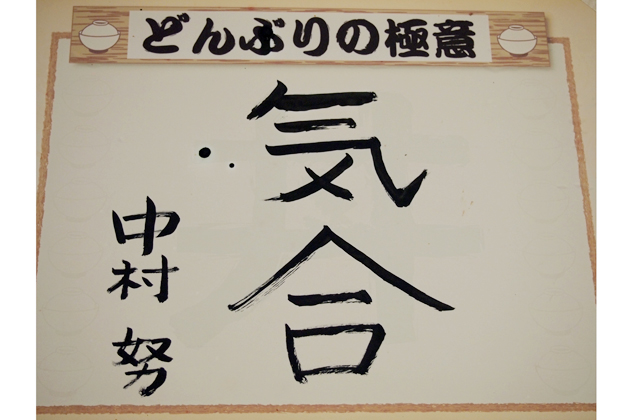 どんぶりの極意
気合
中村 努